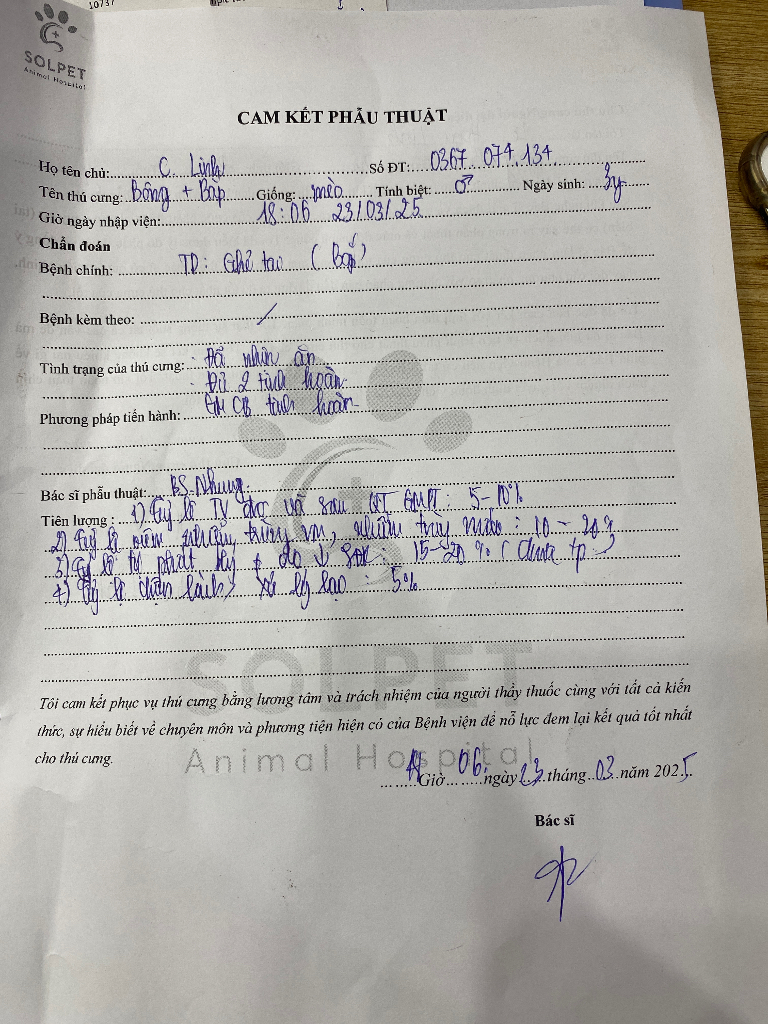 10737
SOLPET
Animal Hospital
CAM KẾT PHẪU THUẬT
Họ tên chủ: C. Linh Số ĐT: 0367 074 134
Tên thú cưng: Bông + Bắp Giống: mèo Tính biệt: ♂ Ngày sinh: 3y
Giờ ngày nhập viện: 18:06 23/03/25
Chẩn đoán
Bệnh chính: TD: Ghẻ tai (Bắp)
Bệnh kèm theo: /
Tình trạng của thú cưng: . Đã nhịn ăn
. Đủ 2 tinh hoàn
Phương pháp tiến hành: GM CB tinh hoàn
Bác sĩ phẫu thuật: BS. Nhung
Tiên lượng: 1) Tỷ lệ TV và sau QT GMPT: 5-10%
2) Tỷ lệ viêm nhiễm trùng VM, nhiễm trùng máu: 10-20%
3) Tỷ lệ tự phát do ↓ SĐK: 15-20% (
4) Tỷ lệ chậm lành, xử lý lại: 5%
Tôi cam kết phục vụ thú cưng bằng lương tâm và trách nhiệm của người thầy thuốc cùng với tất cả kiến
thức, sự hiểu biết về chuyên môn và phương tiện hiện có của Bệnh viện để nỗ lực đem lại kết quả tốt nhất
cho thú cưng.
SOLPET
Animal Hospital
Giờ 06, ngày 23 tháng 03 năm 2025.
Bác sĩ